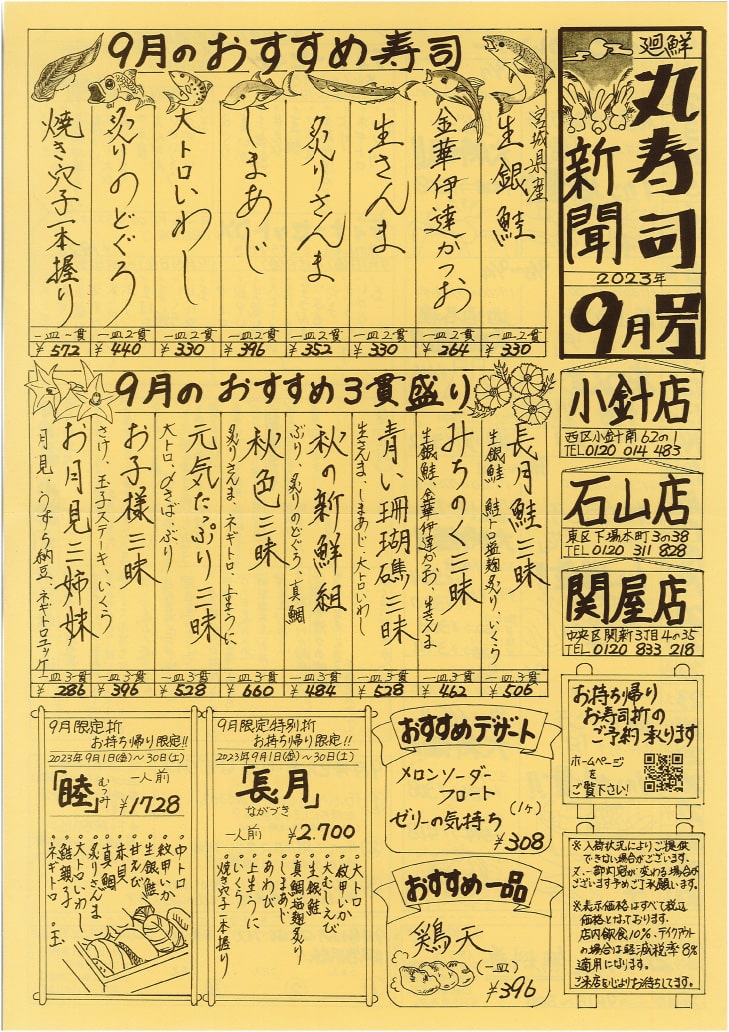 廻鮮
丸寿司
新聞
2023年
9月号
9月のおすすめ寿司
宮城県産
生銀鮭
一皿2貫
¥330
金華伊達かつお
一皿2貫
¥264
生さんま
一皿2貫
¥330
炙りさんま
一皿2貫
¥352
しまあじ
一皿2貫
¥396
大トロいわし
一皿2貫
¥330
炙りのどぐろ
一皿2貫
¥440
焼き穴子一本握り
一皿一貫
¥572
9月のおすすめ3貫盛り
長月鮭三昧
生銀鮭、鮭トロ塩麹炙り、いくら
一皿3貫
¥506
みちのく三昧
生銀鮭、金華伊達かつお、生さんま
一皿3貫
¥462
青い珊瑚礁三昧
生さんま、しまあじ、大トロいわし
一皿3貫
¥528
秋の新鮮組
ぶり、炙りのどぐろ、真鯛
一皿3貫
¥484
秋色三昧
炙りさんま、ネギトロ、上生うに
一皿3貫
¥660
元気たっぷり三昧
大トロ、〆さば、ぶり
一皿3貫
¥528
お子様三昧
さけ、玉子ステーキ、いくら
一皿3貫
¥396
お月見三姉妹
月見、うずら納豆、ネギトロユッケ
一皿3貫
¥286
小針店
西区小針南62の1
TEL0120 014 483
石山店
東区下場本町3の38
TEL0120 311 828
関屋店
中央区関新3丁目4の35
TEL0120 833 218
9月限定折
お持ち帰り限定!!
2023年9月1日(金)〜30日(土)
「睦」
むつみ
一人前
¥1728
。中トロ
。紋甲いか
。生銀鮭
。甘えび
。赤貝
。真鯛
。炙りさんま
。大トロいわし
。鮭親子
。ネギトロ 。玉
9月限定特別折
お持ち帰り限定!!
2023年9月1日(金)〜30日(土)
「長月」
ながづき
一人前 ¥2.700
。大トロ
。紋甲いか
。大むしえび
。生銀鮭
。真鯛塩麹炙り
。しまあじ
。あわび
。上生うに
。いくら
。焼き穴子一本握り
おすすめデザート
メロンソーダー
フロート
ゼリーの気持ち
(1ヶ)
¥308
おすすめ一品
鶏天
(一皿)
¥396
お持ち帰り
お寿司折の
ご予約承ります
ホームページ
を
ご覧下さい!
※入荷状況によりご提供
できない場合がございます。
又、一部内容が変わる場合が
ございます予めご了承願います。
※表示価格はすべて税込
価格となっております。
店内飲食10%、テイクアウト
の場合は軽減税率8%
適用になります。
ご来店を心よりお待ちしてます。